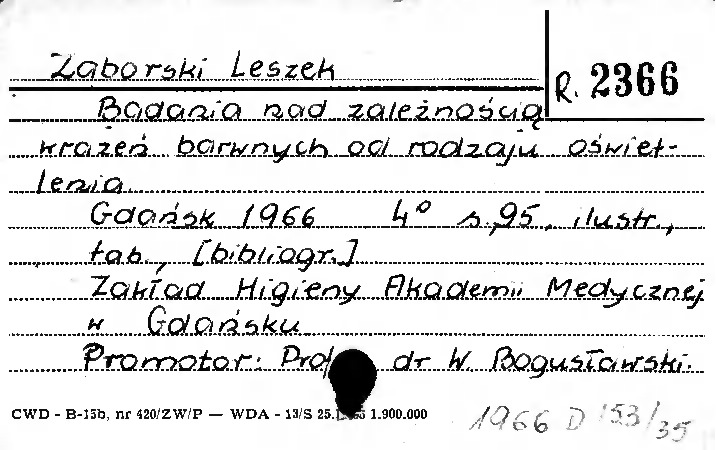 Zaborski Leszek
R. 2366
Badania nad zależnością
wrażeń barwnych od rodzaju oświet-
lenia
Gdańsk 1966 4° s. 95, ilustr.,
tab., [bibliogr.]
Zakład Higieny Akademii Medycznej
w Gdańsku
Promotor: Prof. dr W. Bogusławski.
CWD - B-15b, nr 420/ZW/P — WDA - 13/S 1.900.000
1966 D 153/35